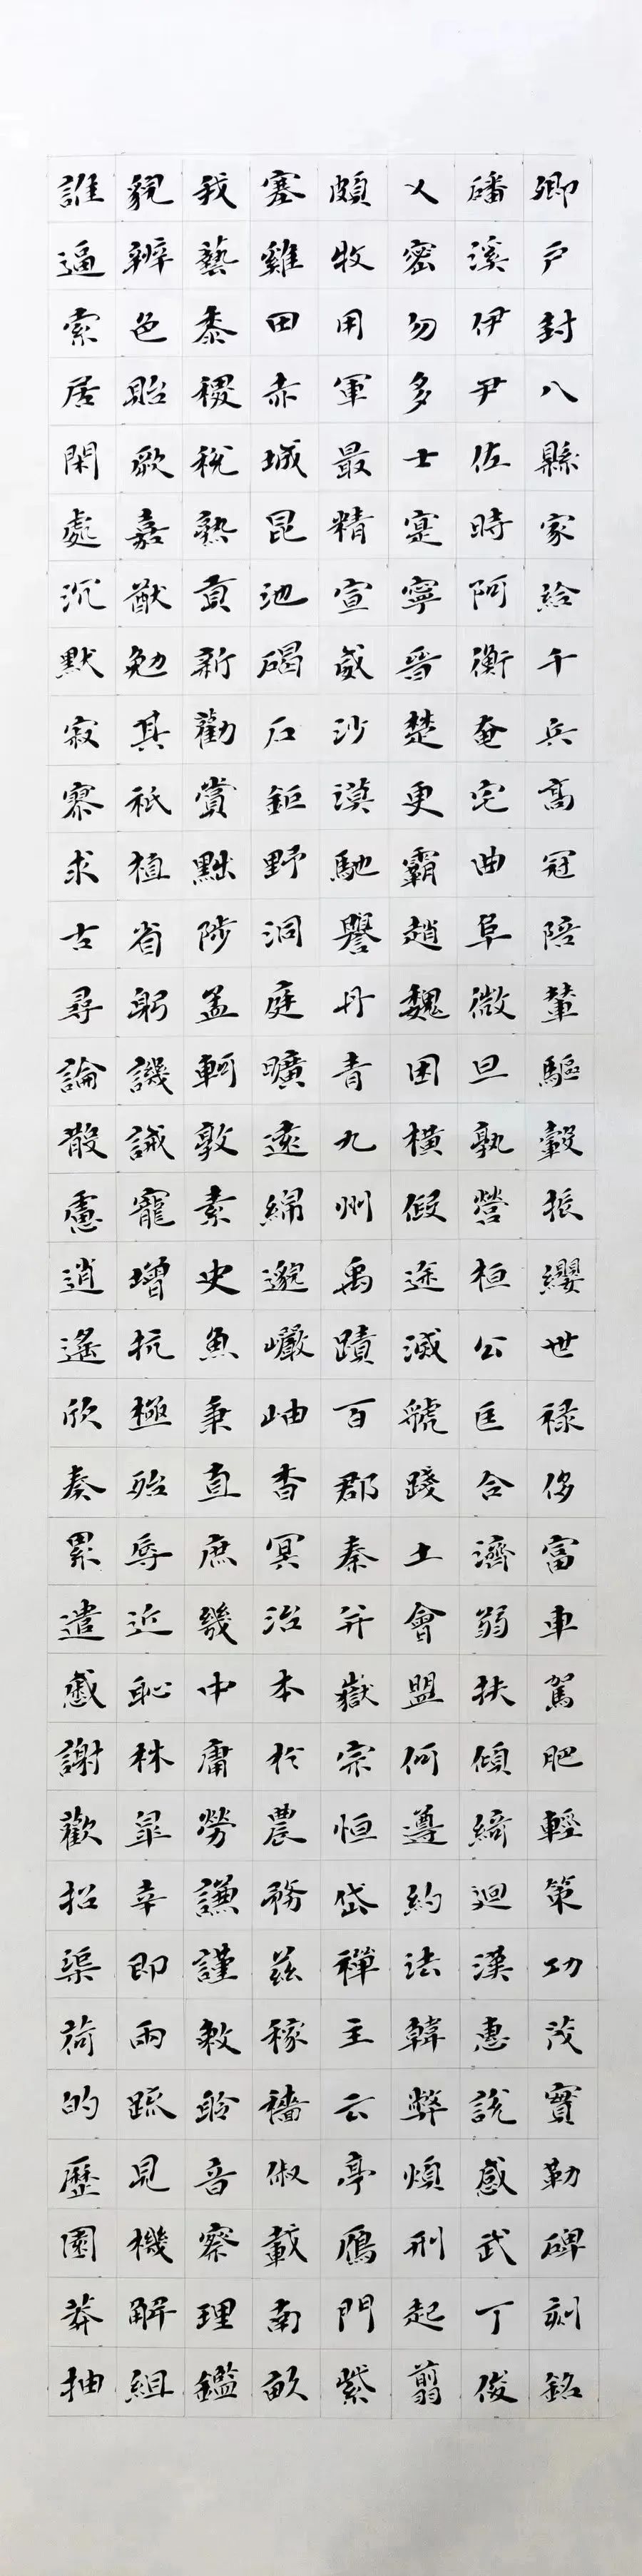 卿戶封八縣家給千兵高冠陪輦驅轂振纓世祿侈富車駕肥輕策功茂實勒碑刻銘
磻溪伊尹佐時阿衡奄宅曲阜微旦孰營桓公匡合濟弱扶傾綺迴漢惠說感武丁俊
乂密勿多士寔寧晉楚更霸趙魏困橫假途滅虢踐土會盟何遵約法韓弊煩刑起翦
頗牧用軍最精宣威沙漠馳譽丹青九州禹蹟百郡秦并嶽宗恒岱禪主云亭鴈門紫
塞雞田赤城昆池碣石鉅野洞庭曠遠綿邈巖岫杳冥治本於農務茲稼穡俶載南畝
我藝黍稷稅熟貢新勸賞黜陟孟軻敦素史魚秉直庶幾中庸勞謙謹敕聆音察理鑑
貌辨色貽厥嘉猷勉其祗植省躬譏誡寵增抗極殆辱近恥林皋幸即兩疏見機解組
誰逼索居閑處沉默寂寥求古尋論散慮逍遙欣奏累遣慼謝歡招渠荷的歷園莽抽